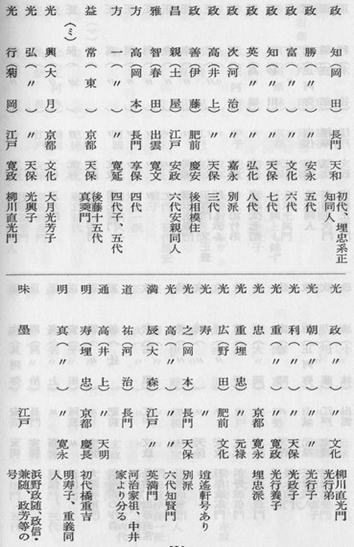 政知(岡田) 長門 天和 初代、埋忠系正知同人
政勝(〃) 〃 安永 五代
政富(〃) 〃 文化 六代
政知(〃) 〃 天保 七代
政英(〃) 〃 弘化 八代
政次(河治) 〃 嘉永 別派
政高(井上) 〃 天保 三代
政善(伊藤) 肥前 慶安 後相模住
昌親(土屋) 江戸 安政 六代安親同人
雅智(春田) 出雲 寛文
方高(岡本) 長門 享保 四代
方一(〃) 〃 寛延 四代子、五代
益常(東) 京都 天保 後藤十五代真乗門
(ミ)
光興(大月) 京都 文化 大月光芳子
光弘(〃) 〃 天保 光興子
光行(菊岡) 江戸 寛政 柳川直光門
光政(〃) 〃 文化 柳川直光門 光行弟
光朝(〃) 〃 〃 光行子
光利(〃) 〃 天保 光政子
光高(〃) 〃 寛政 光行養子
光忠 京都 寛永 埋忠派
光重(埋忠) 〃 元禄
光広(野田) 肥前 文化
光寿 〃 逍遙軒号あり
光之(岡本) 長門 天保 別派
光高(〃) 〃 〃 六代知賢門
満辰(大森) 江戸 〃 英満門
道祐(河治) 長門 河治家祖、中井家より分る
通高(井上) 〃 天明
明寿(埋忠) 京都 慶長 初代橘重吉
明真(〃) 〃 寛永 明寿子、重義同人
味墨 江戸 浜野政随、政信・兼随、政芳等の号